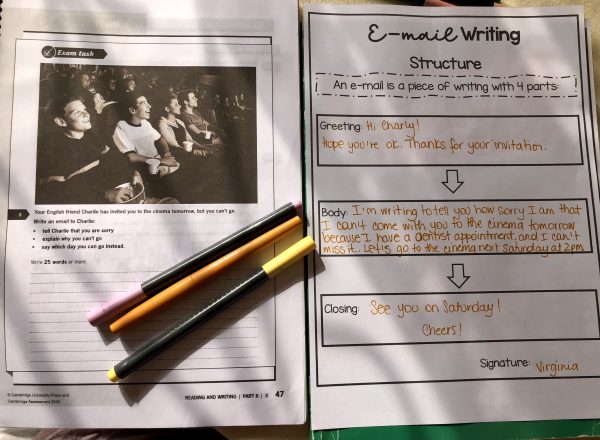 Exam task
3 Your English friend Charlie has invited you to the cinema tomorrow, but you can't go.
Write an email to Charlie:
• tell Charlie that you are sorry
• explain why you can't go
• say which day you can go instead.
Write 25 words or more.
© Cambridge University Press and
Cambridge Assessment 2020
READING AND WRITING | PART 6 | 3 47
E-mail Writing
Structure
An e-mail is a piece of writing with 4 parts:
Greeting: Hi Charly!
Hope you're ok. Thanks for your invitation.
Body: I'm writing to tell you how sorry I am that
I can't come with you to the cinema tomorrow
because I have a dentist appointment, and I can't
miss it. Let's go to the cinema next Saturday at 2pm
Closing: See you on Saturday!
Cheers!
Signature: Virginia